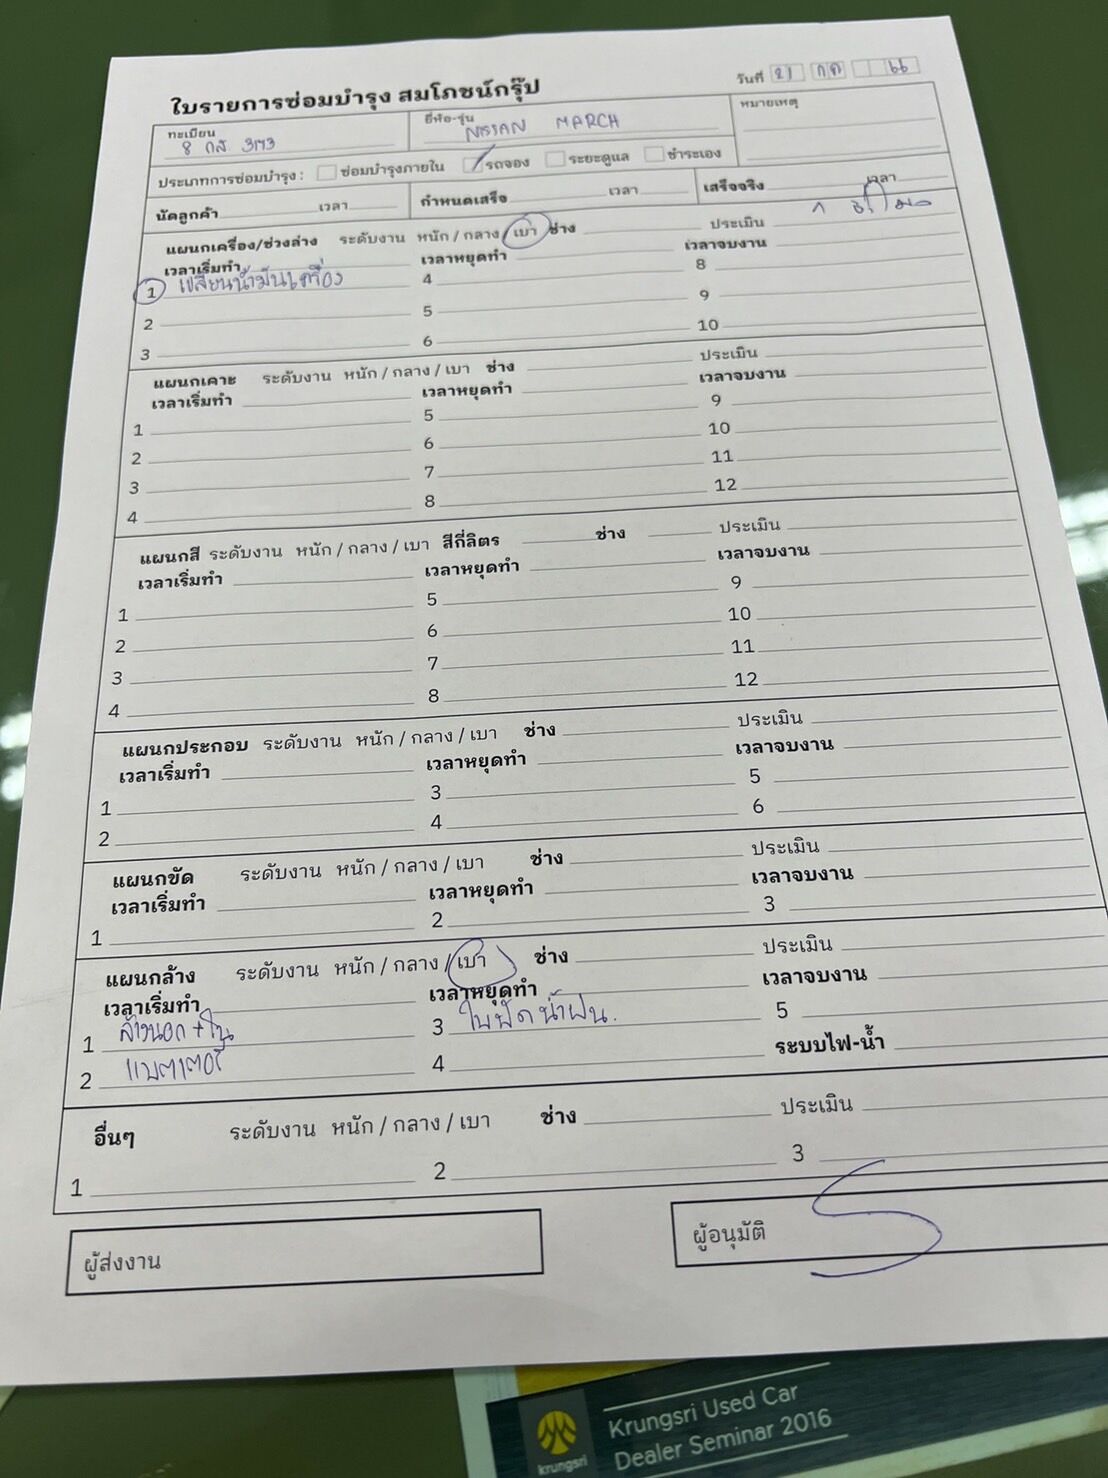 ใบรายการซ่อมบำรุง สมโภชน์กรุ๊ป
วันที่ 21 กค 66
ทะเบียน
ยี่ห้อ-รุ่น NISSAN MARCH
หมายเหตุ
ประเภทการซ่อมบำรุง : ซ่อมบำรุงภายใน รถจอง ระยะดูแล ชำระเอง
นัดลูกค้า เวลา กำหนดเสร็จ เวลา เสร็จจริง เวลา
แผนกเครื่อง/ช่วงล่าง ระดับงาน หนัก / กลาง / เบา ช่าง ประเมิน 1 ชั่วโมง
เวลาเริ่มทำ เวลาหยุดทำ เวลาจบงาน
1 เปลี่ยนน้ำมันเครื่อง 4 8
2 5 9
3 6 10
แผนกเคาะ ระดับงาน หนัก / กลาง / เบา ช่าง ประเมิน
เวลาเริ่มทำ เวลาหยุดทำ เวลาจบงาน
1 5 9
2 6 10
3 7 11
4 8 12
แผนกสี ระดับงาน หนัก / กลาง / เบา สีกี่ลิตร ช่าง ประเมิน
เวลาเริ่มทำ เวลาหยุดทำ เวลาจบงาน
1 5 9
2 6 10
3 7 11
4 8 12
แผนกประกอบ ระดับงาน หนัก / กลาง / เบา ช่าง ประเมิน
เวลาเริ่มทำ เวลาหยุดทำ เวลาจบงาน
1 3 5
2 4 6
แผนกขัด ระดับงาน หนัก / กลาง / เบา ช่าง ประเมิน
เวลาเริ่มทำ เวลาหยุดทำ เวลาจบงาน
1 2 3
แผนกล้าง ระดับงาน หนัก / กลาง / เบา ช่าง ประเมิน
เวลาเริ่มทำ เวลาหยุดทำ เวลาจบงาน
1 ล้างนอก + ใน 3 ใบปัดน้ำฝน. 5
2 แบตเตอรี่ 4 ระบบไฟ-น้ำ
อื่นๆ ระดับงาน หนัก / กลาง / เบา ช่าง ประเมิน
1 2 3
ผู้ส่งงาน ผู้อนุมัติ
Krungsri Used Car
Dealer Seminar 2016
krungsri